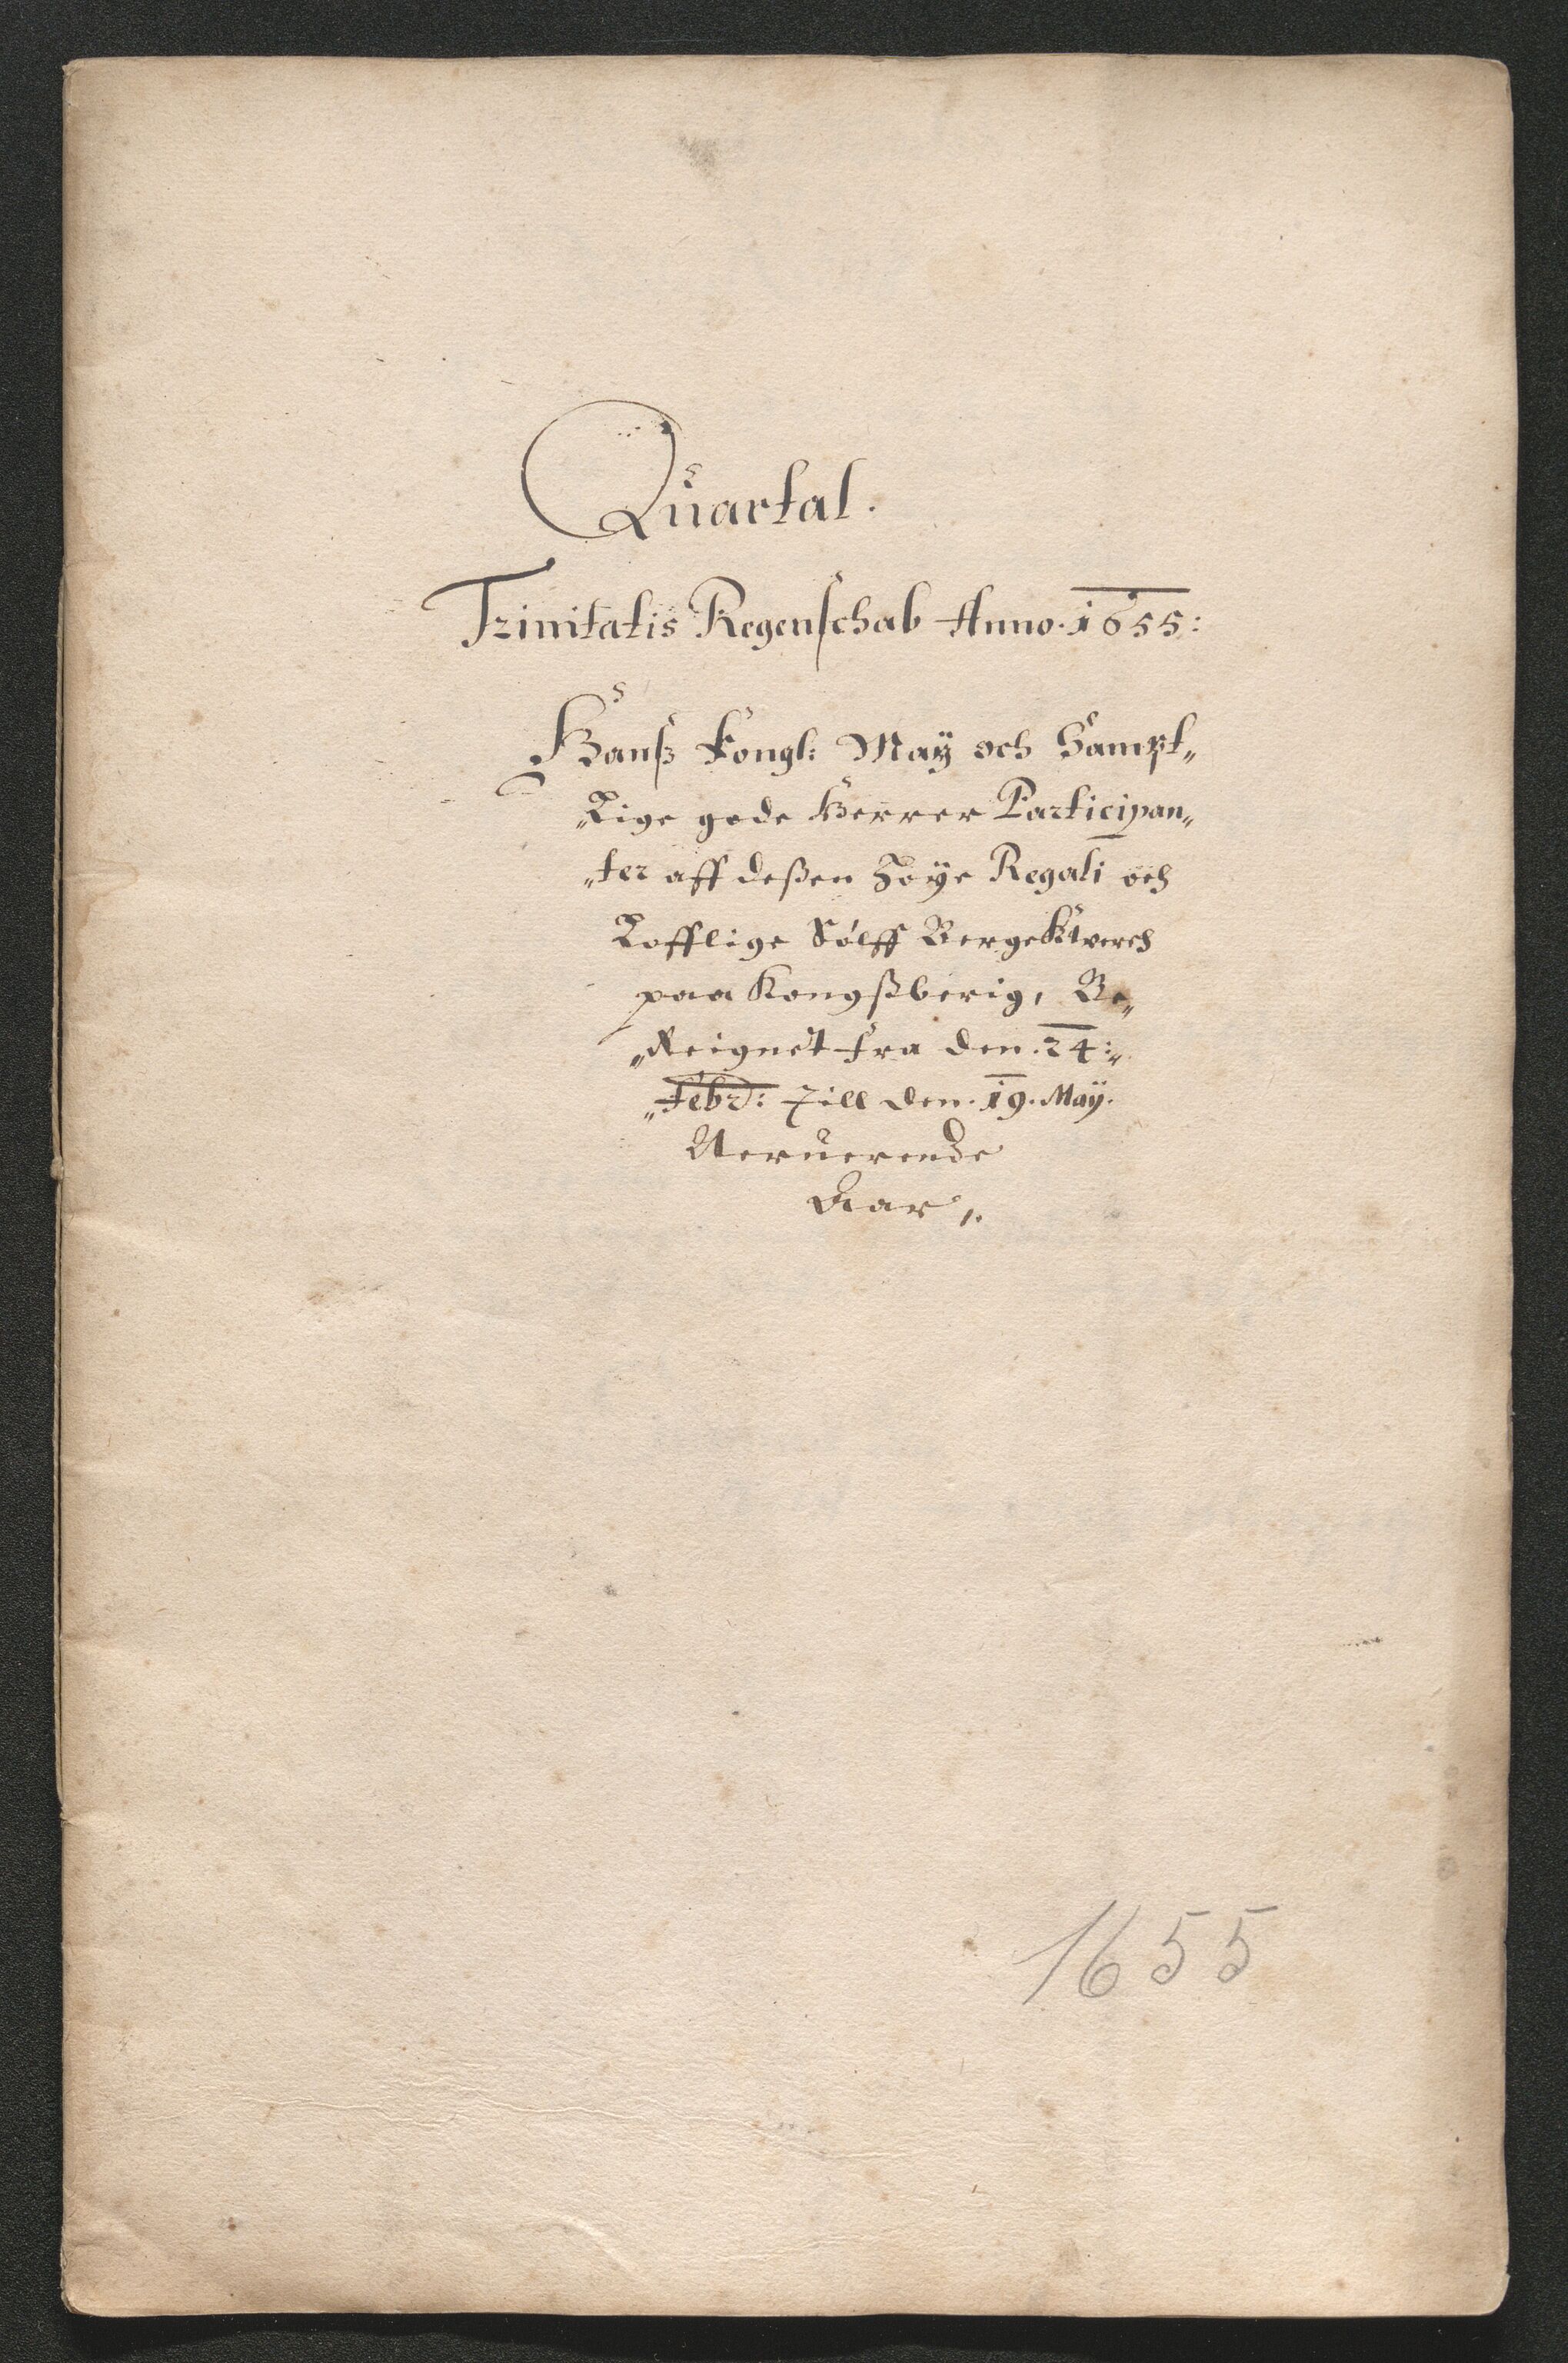 Quartal.
Trinitatis Regenschab Anno. 1655:
Hanß Kongl: May och Sampt„
„Lige gode Herrer Participan„
„ter aff deßen Höye Regali och
Lofflige Sölff Bergekwerch
paa Kongßberig, Be„
„Reignet fra den. 24:„
„Febr: Till den. 19. May.
Neruerende
Aar,.
1655